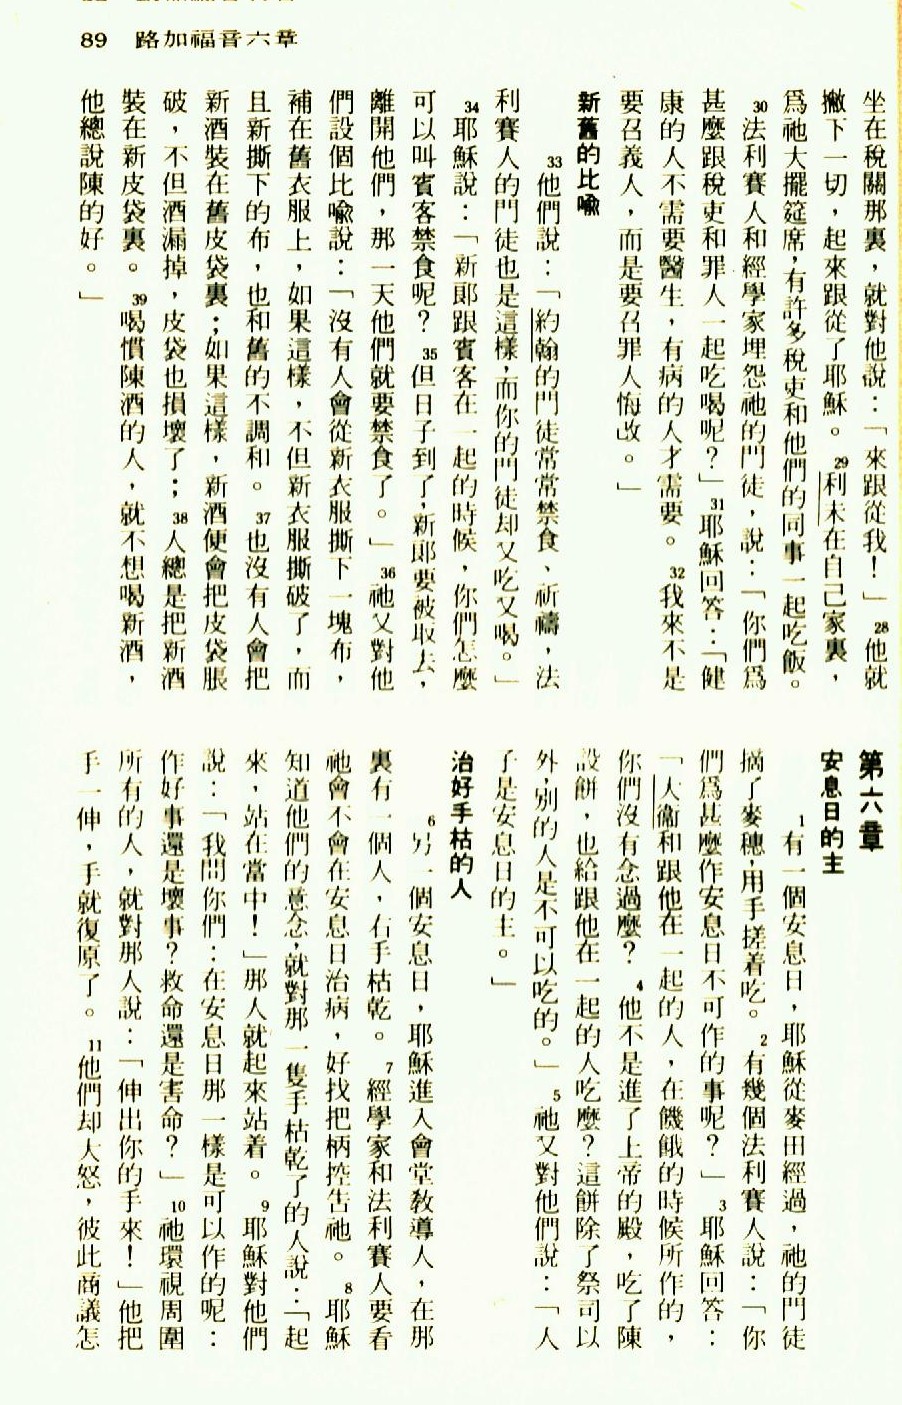 89 路加福音六章
坐在稅關那裏，就對他說：「來跟從我！」28他就
撇下一切，起來跟從了耶穌。29利未在自己家裏，
爲祂大擺筵席，有許多稅吏和他們的同事一起吃飯。
30法利賽人和經學家埋怨祂的門徒，說：「你們爲
甚麼跟稅吏和罪人一起吃喝呢？」31耶穌回答：「健
康的人不需要醫生，有病的人才需要。32我來不是
要召義人，而是要召罪人悔改。」
新舊的比喩
33他們說：「約翰的門徒常常禁食、祈禱，法
利賽人的門徒也是這樣，而你的門徒却又吃又喝。」
34耶穌說：「新郞跟賓客在一起的時候，你們怎麼
可以叫賓客禁食呢？35但日子到了，新郞要被取去，
離開他們，那一天他們就要禁食了。」36祂又對他
們設個比喩說：「沒有人會從新衣服撕下一塊布，
補在舊衣服上，如果這樣，不但新衣服撕破了，而
且新撕下的布，也和舊的不調和。37也沒有人會把
新酒裝在舊皮袋裏；如果這樣，新酒便會把皮袋脹
破，不但酒漏掉，皮袋也損壞了；38人總是把新酒
裝在新皮袋裏。39喝慣陳酒的人，就不想喝新酒，
他總說陳的好。」
第六章
安息日的主
1有一個安息日，耶穌從麥田經過，祂的門徒
摘了麥穗，用手搓着吃。2有幾個法利賽人說：「你
們爲甚麼作安息日不可作的事呢？」3耶穌回答：
「大衞和跟他在一起的人，在饑餓的時候所作的，
你們沒有念過麼？4他不是進了上帝的殿，吃了陳
設餅，也給跟他在一起的人吃麼？這餅除了祭司以
外，別的人是不可以吃的。」5祂又對他們說：「人
子是安息日的主。」
治好手枯的人
6另一個安息日，耶穌進入會堂敎導人，在那
裏有一個人，右手枯乾。7經學家和法利賽人要看
祂會不會在安息日治病，好找把柄控告祂。8耶穌
知道他們的意念，就對那一隻手枯乾了的人說：「起
來，站在當中！」那人就起來站着。9耶穌對他們
說：「我問你們：在安息日那一樣是可以作的呢：
作好事還是壞事？救命還是害命？」10祂環視周圍
所有的人，就對那人說：「伸出你的手來！」他把
手一伸，手就復原了。11他們却大怒，彼此商議怎